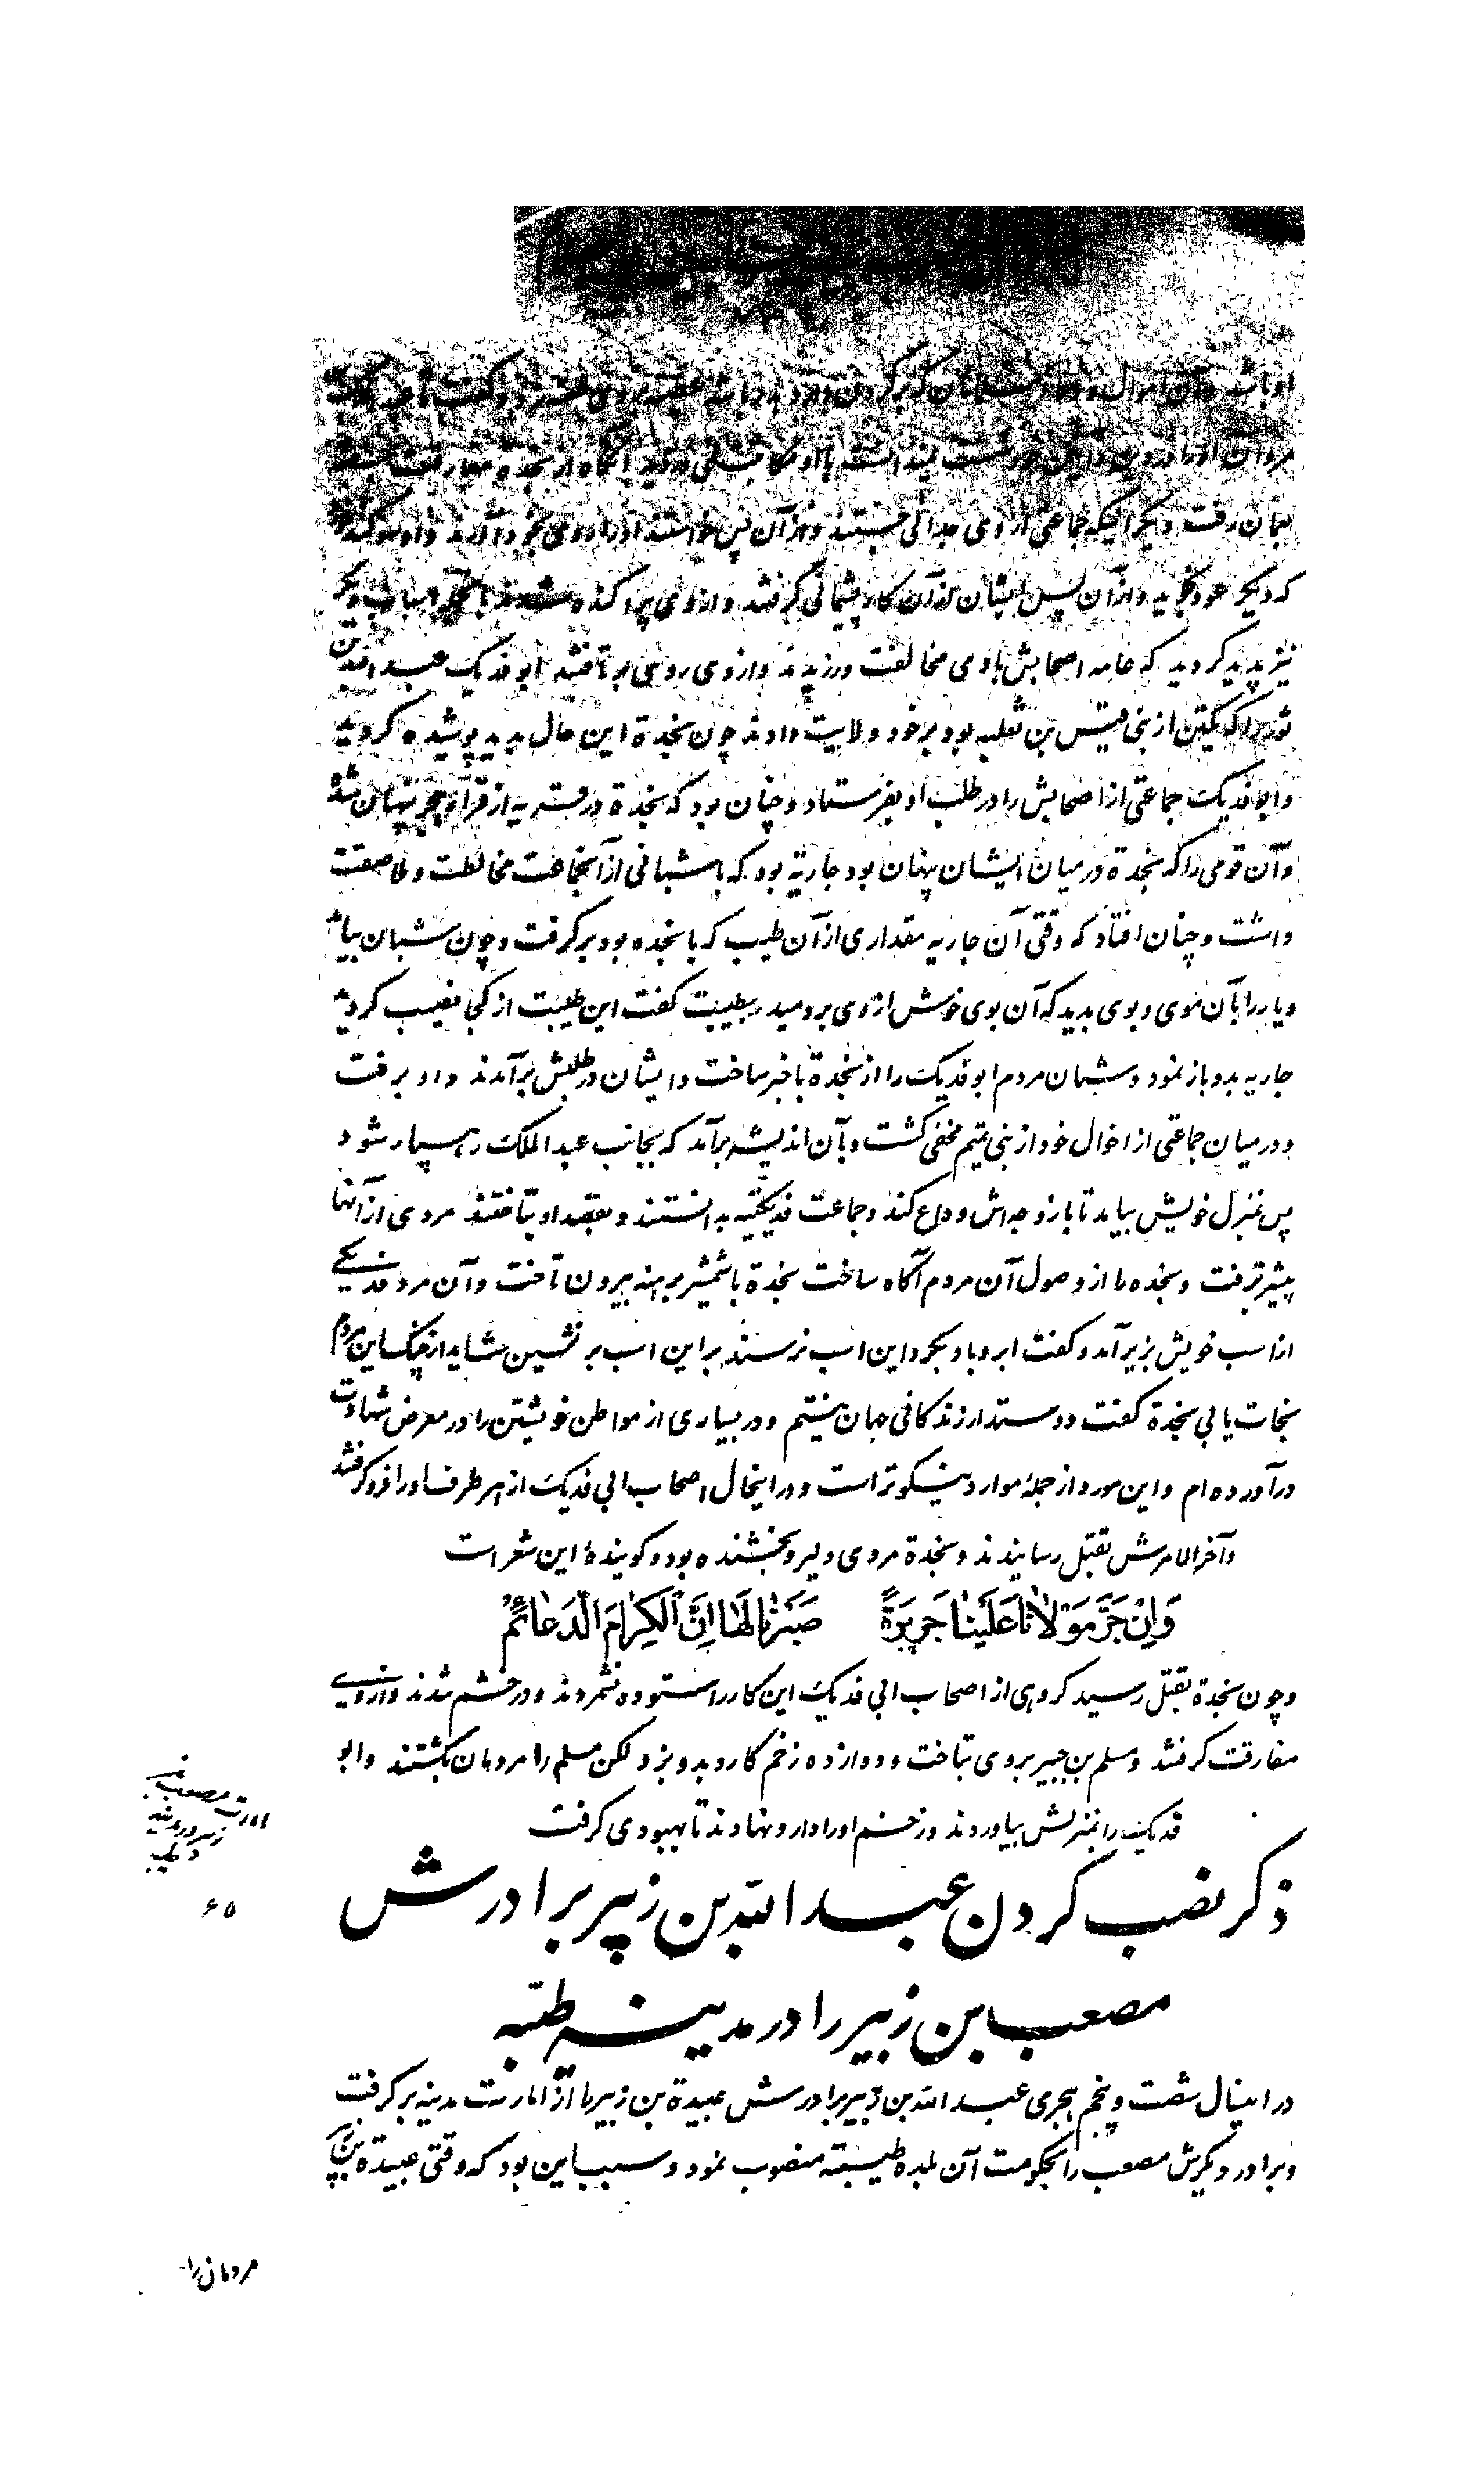 بعمان رفت دیگر اینکه جماعتی از وی جدائی جستند و از آن پس خواستند او را بخود آورند
که دیگر عود نجوید و از آن پس ایشان از آن کار پشیمانی گرفتند و از وی پراکنده شدند
نیز پدید گردید که عامه اصحابش با وی مخالفت ورزیدند و از وی روی برتافتند ابو فدیک عبد الله بن
ثور را که یکتن از بنی قیس بن ثعلبه بود بر خود ولایت دادند چون نجدة این حال بدید پوشیده گردید
و ابو فدیک جماعتی از اصحابش را در طلب او بفرستاد و چنان بود که نجدة در قریه از قرای حجر پنهان شد
و آن قومی را که نجدة در میان ایشان پنهان بود جاریة بود که با شبانی از آنجماعت مخالطت و ملاصقت
داشت و چنان افتاد که وقتی آن جاریه مقداری از آن طیب که با نجده بود بر گرفت و چون شبان بیامد
و یار را بآن موی و بوی بدید که آن بوی خوش از وی بردمید بطیبت گفت این طیبت از کجا نصیب گردید
جاریه بدو باز نمود و شبان مردم ابو فدیک را از نجدة با خبر ساخت و ایشان در طلبش برآمدند و او برفت
و در میان جماعتی از اخوال خود از بنی تمیم مخفی گشت و بآن اندیشه برآمد که بجانب عبد الملک رهسپار شود
پس بمنزل خویش بیامد تا با زوجه‌اش وداع کند و جماعت فدیکیه بدانستند و بقصد او بتاختند مردی از آنها
پیشتر برفت و نجده را از وصول آن مردم آگاه ساخت نجدة با شمشیر برهنه بیرون تاخت و آن مرد فدیکی
از اسب خویش بزیر آمد و گفت ابر و باد بگرد این اسب نرسند بر این اسب بر نشین شاید از چنگ این مردم
نجات یابی نجدة گفت دوستدار زندگانی جهان نیستم و در بسیاری از مواطن خویشتن را در معرض شهادت
درآورده‌ام و این مورد از جمله موارد نیکوتر است و در اینحال اصحاب ابی فدیک از هر طرف او را فرو گرفتند
و آخر الامرش بقتل رسانیدند و نجدة مردی دلیر و بخشنده بود و گوینده این شعر است
وَاِنْ جَرَّ مَوْلانا عَلَیْنا جَریرَةً صَبَرْنا لَها اِنَّ الْکِرامَ الدَّعائِمُ
و چون نجدة بقتل رسید گروهی از اصحاب ابی فدیک این کار را ستوده نشمردند و در خشم شدند و از وی
مفارقت گرفتند و مسلم بن جبیر بر وی بتاخت و دوازده زخم کارد بدو بزد لکن مسلم را مردمان بکشتند و ابو
فدیک را بمنزلش بیاوردند و زخم او را دارو نهادند تا بهبودی گرفت
ذکر نصب کردن عبد الله بن زبیر برادرش
مصعب بن زبیر را در مدینه طیّبه
در اینسال شصت و پنجم هجری عبد الله بن زبیر برادرش عبیدة بن زبیر را از امارت مدینه برگرفت
و برادر دیگرش مصعب را بحکومت آن بلده طیبه منصوب نمود و سبب این بود که وقتی عبیدة بن زبیر
امارت مصعب بن
زبیر در مدینه
طیبه
۶۵
مردمان را